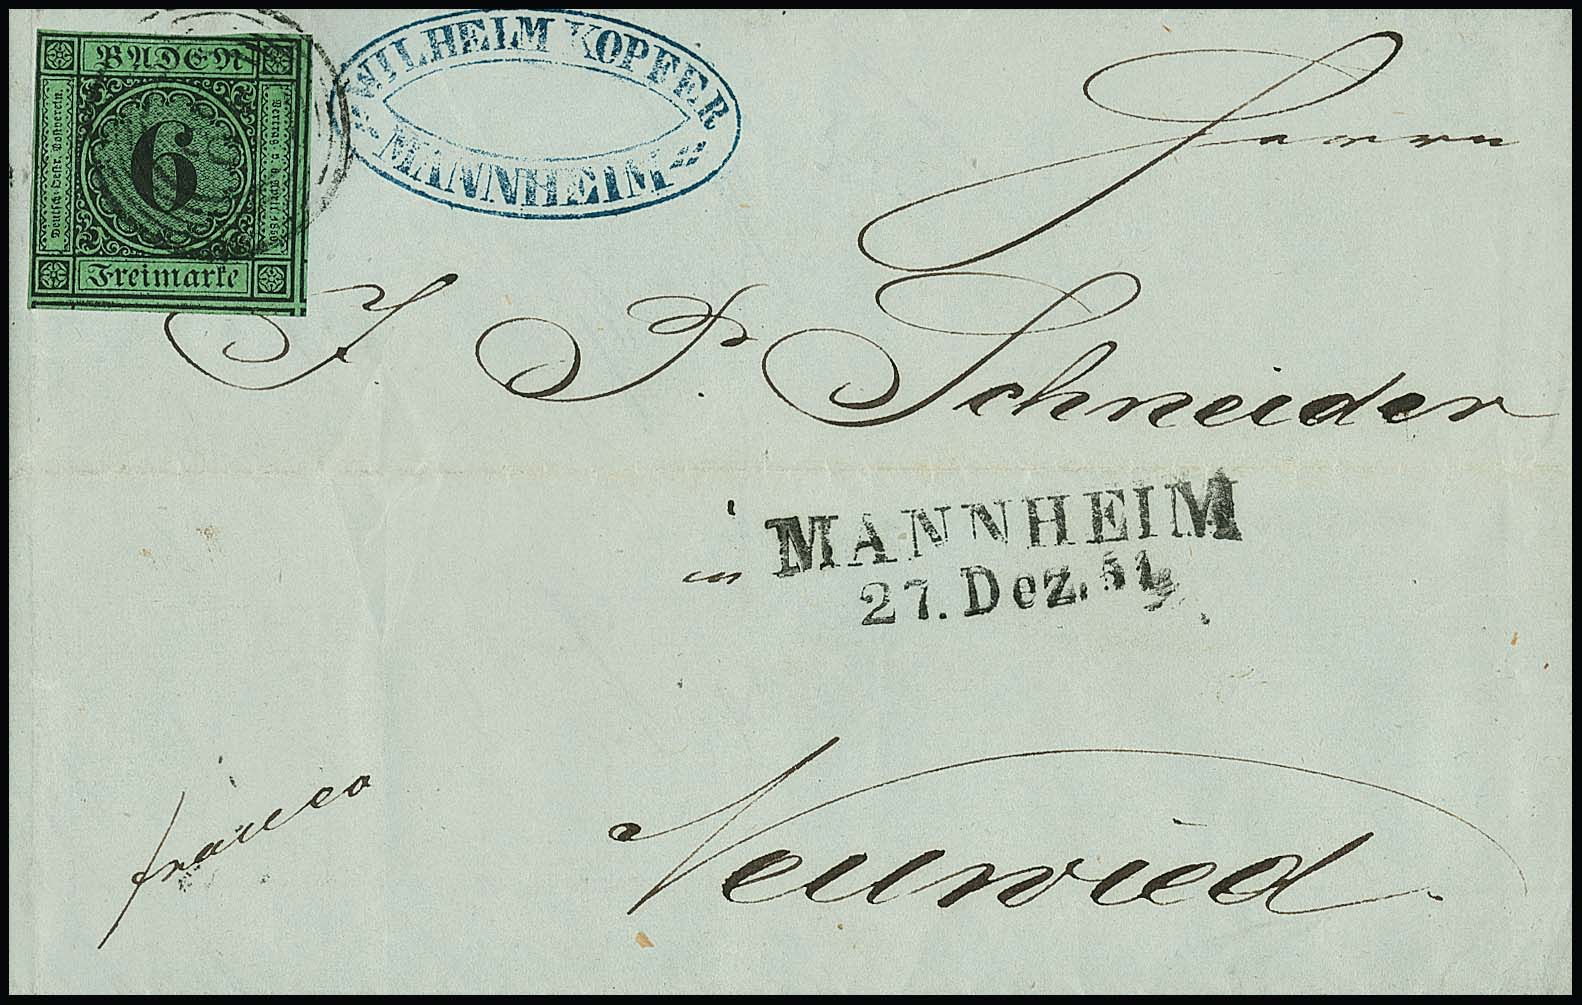 BADEN
Deutsch-Oestr. Postverein.
6
Vertrag v. 6. April 1850.
Freimarke
WILHELM KOPFER
MANNHEIM
Herrn
J. Fr. Schneider
in
MANNHEIM
27. Dez. 51
franco
Neuwied.